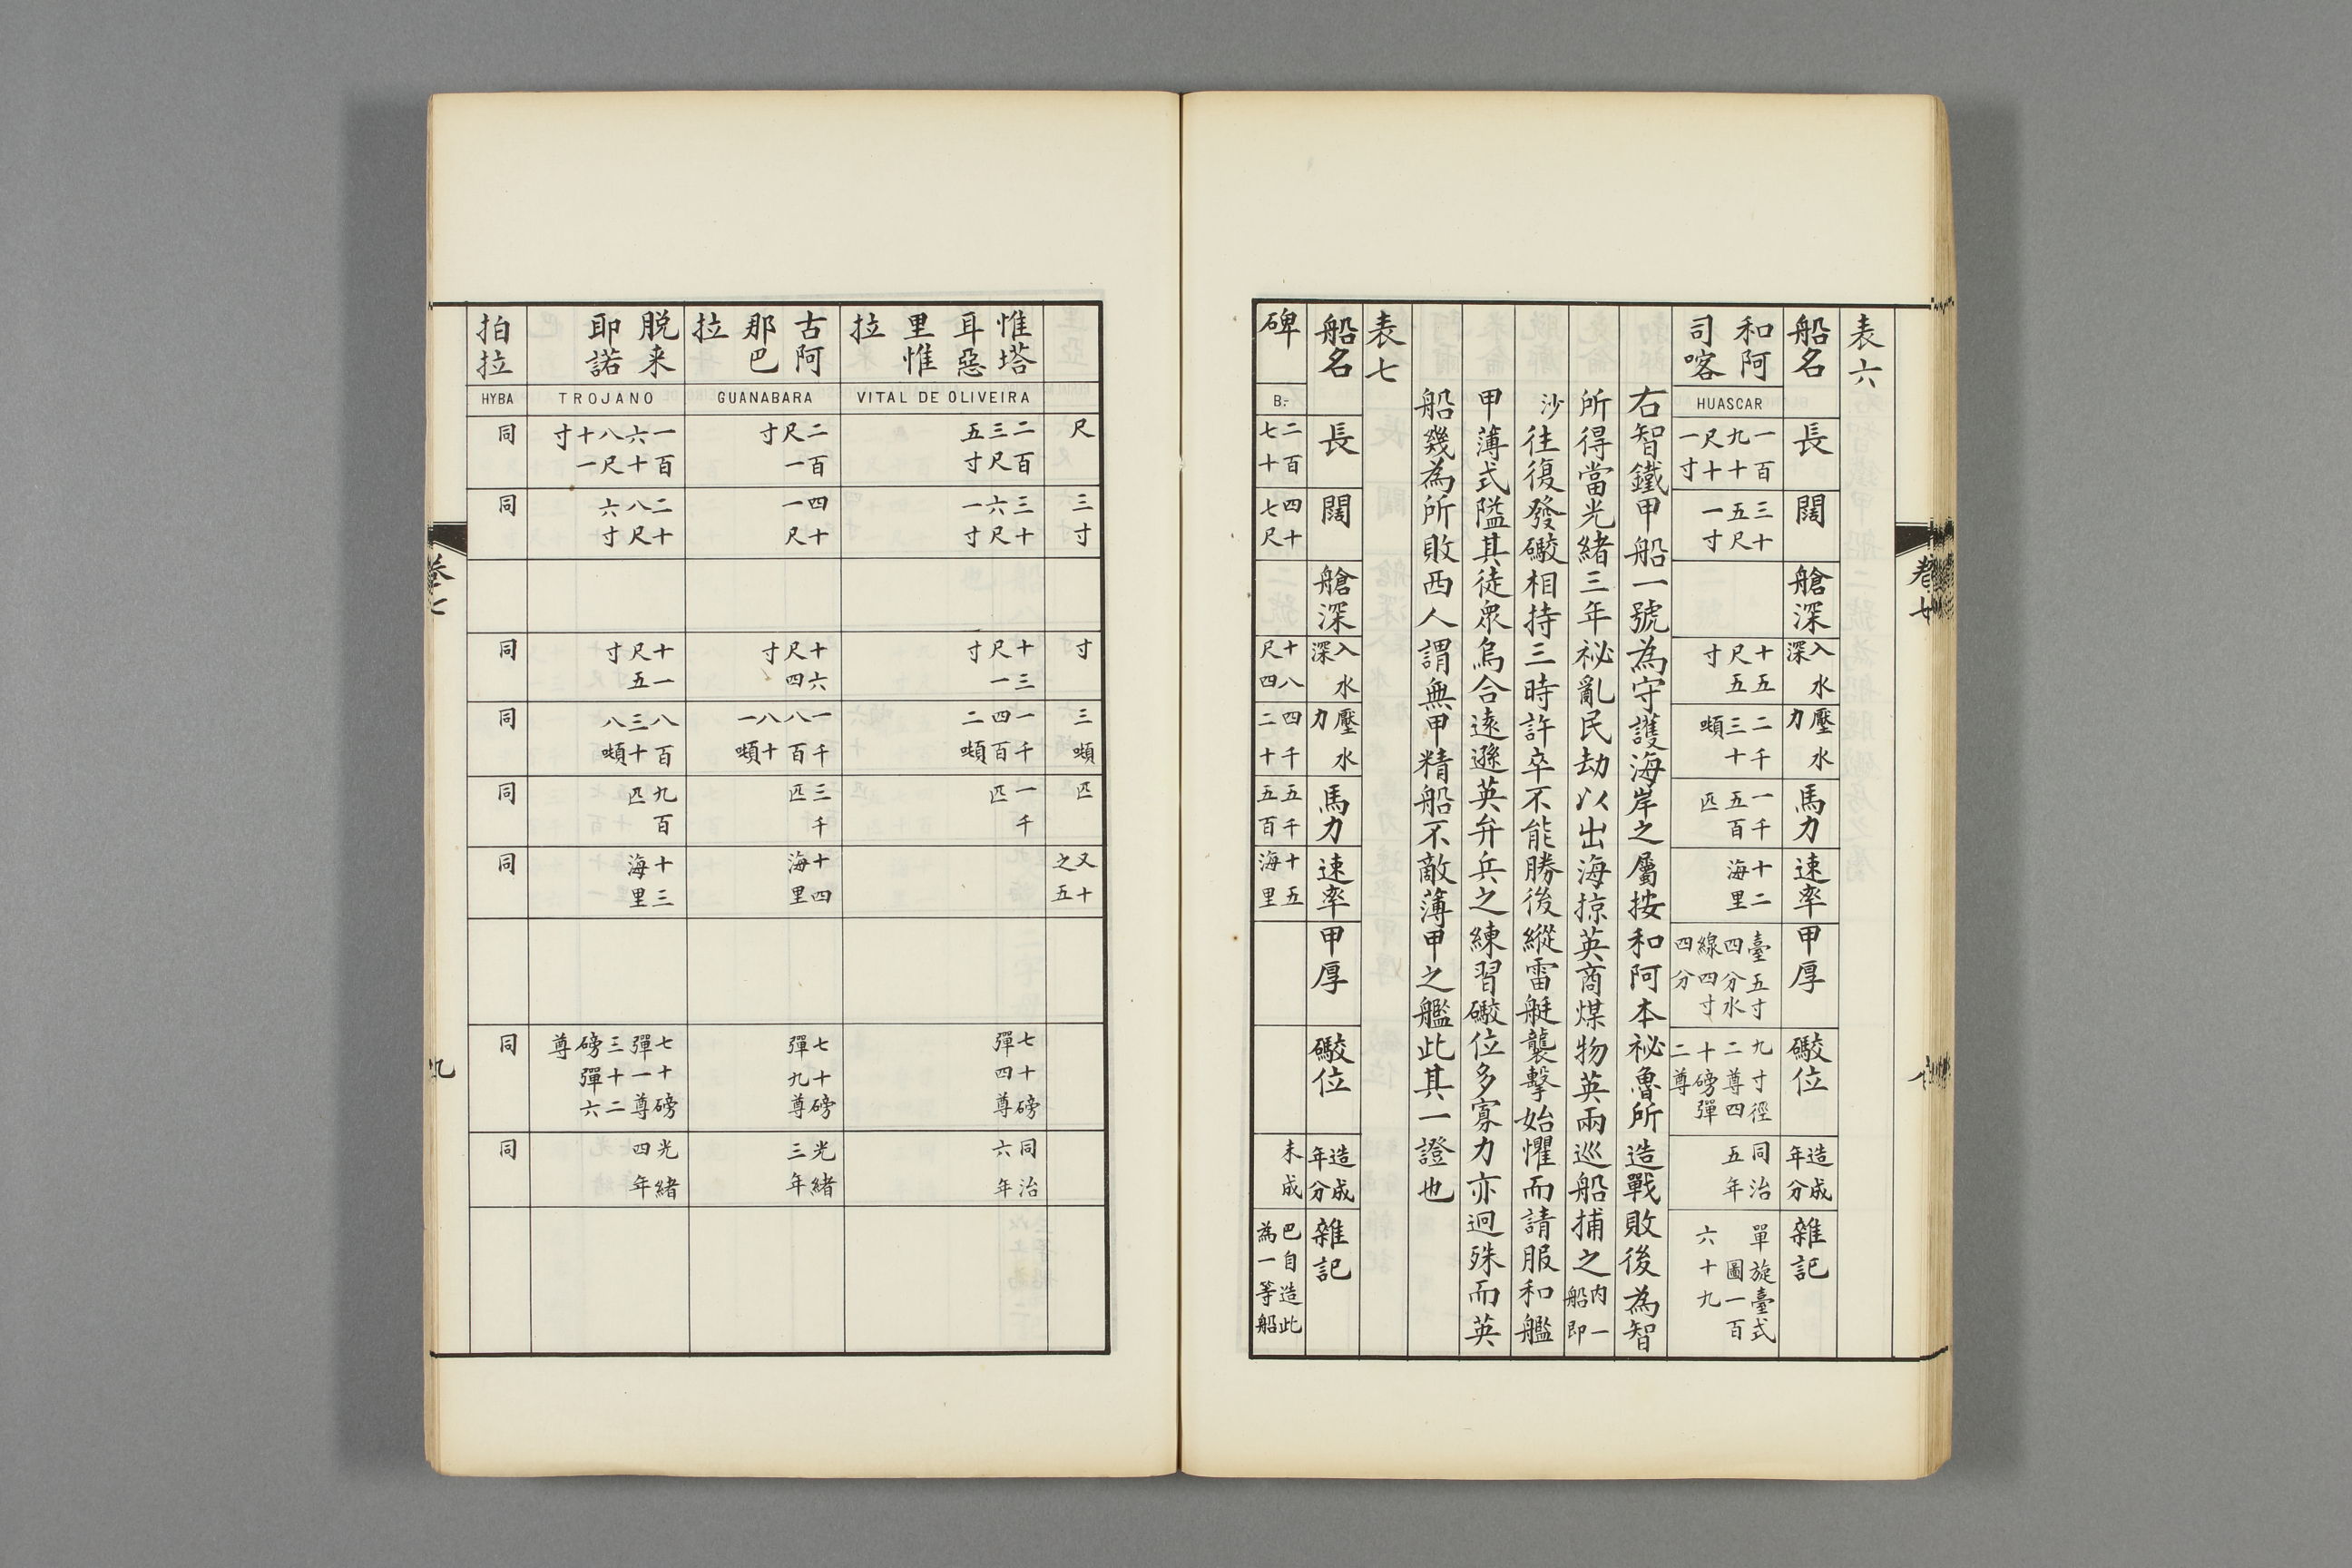 表六
船名 長 闊 艙深 入水深 壓水力 馬力 速率 甲厚 礮位 造成年分 雜記
和阿司喀
HUASCAR
一百九十尺十一寸
三十五尺一寸
十五尺五寸
二千三十噸
一千五百匹
十二海里
臺五寸四分水線四寸四分
九寸徑二尊四十磅彈二尊
同治五年
單旋臺式圖一百六十九
右智鐵甲船一號為守護海岸之屬按和阿本祕魯所造戰敗後為智
所得當光緒三年祕亂民劫以出海掠英商煤物英兩巡船捕之內一船即
沙往復發礮相持三時許卒不能勝後縱雷艇襲擊始懼而請服和艦
甲薄式隘其徒衆烏合遠遜英弁兵之練習礮位多寡力亦迥殊而英
船幾為所敗西人謂無甲精船不敵薄甲之艦此其一證也
表七
船名 長 闊 艙深 入水深 壓水力 馬力 速率 甲厚 礮位 造成年分 雜記
碑
B.
二百七十
四十七尺
十八尺四
四千二十
五千五百
十五海里
未成
巴自造此為一等船
卷七
尺
三寸
寸
三噸
匹
又十之五
惟塔耳惡里惟拉
VITAL DE OLIVEIRA
二百三尺五寸
三十六尺一寸
十三尺一寸
一千四百二噸
一千匹
七十磅彈四尊
同治六年
古阿那巴拉
GUANABARA
二百尺一寸
四十一尺
十六尺四寸
一千八百八十一噸
三千匹
十四海里
七十磅彈九尊
光緒三年
脱来耶諾
TROJANO
一百六十八尺十一寸
二十八尺六寸
十一尺五寸
八百三十八噸
九百匹
十三海里
七十磅彈一尊三十二磅彈六尊
光緒四年
拍拉
HYBA
同
同
同
同
同
同
同
同
卷七
九